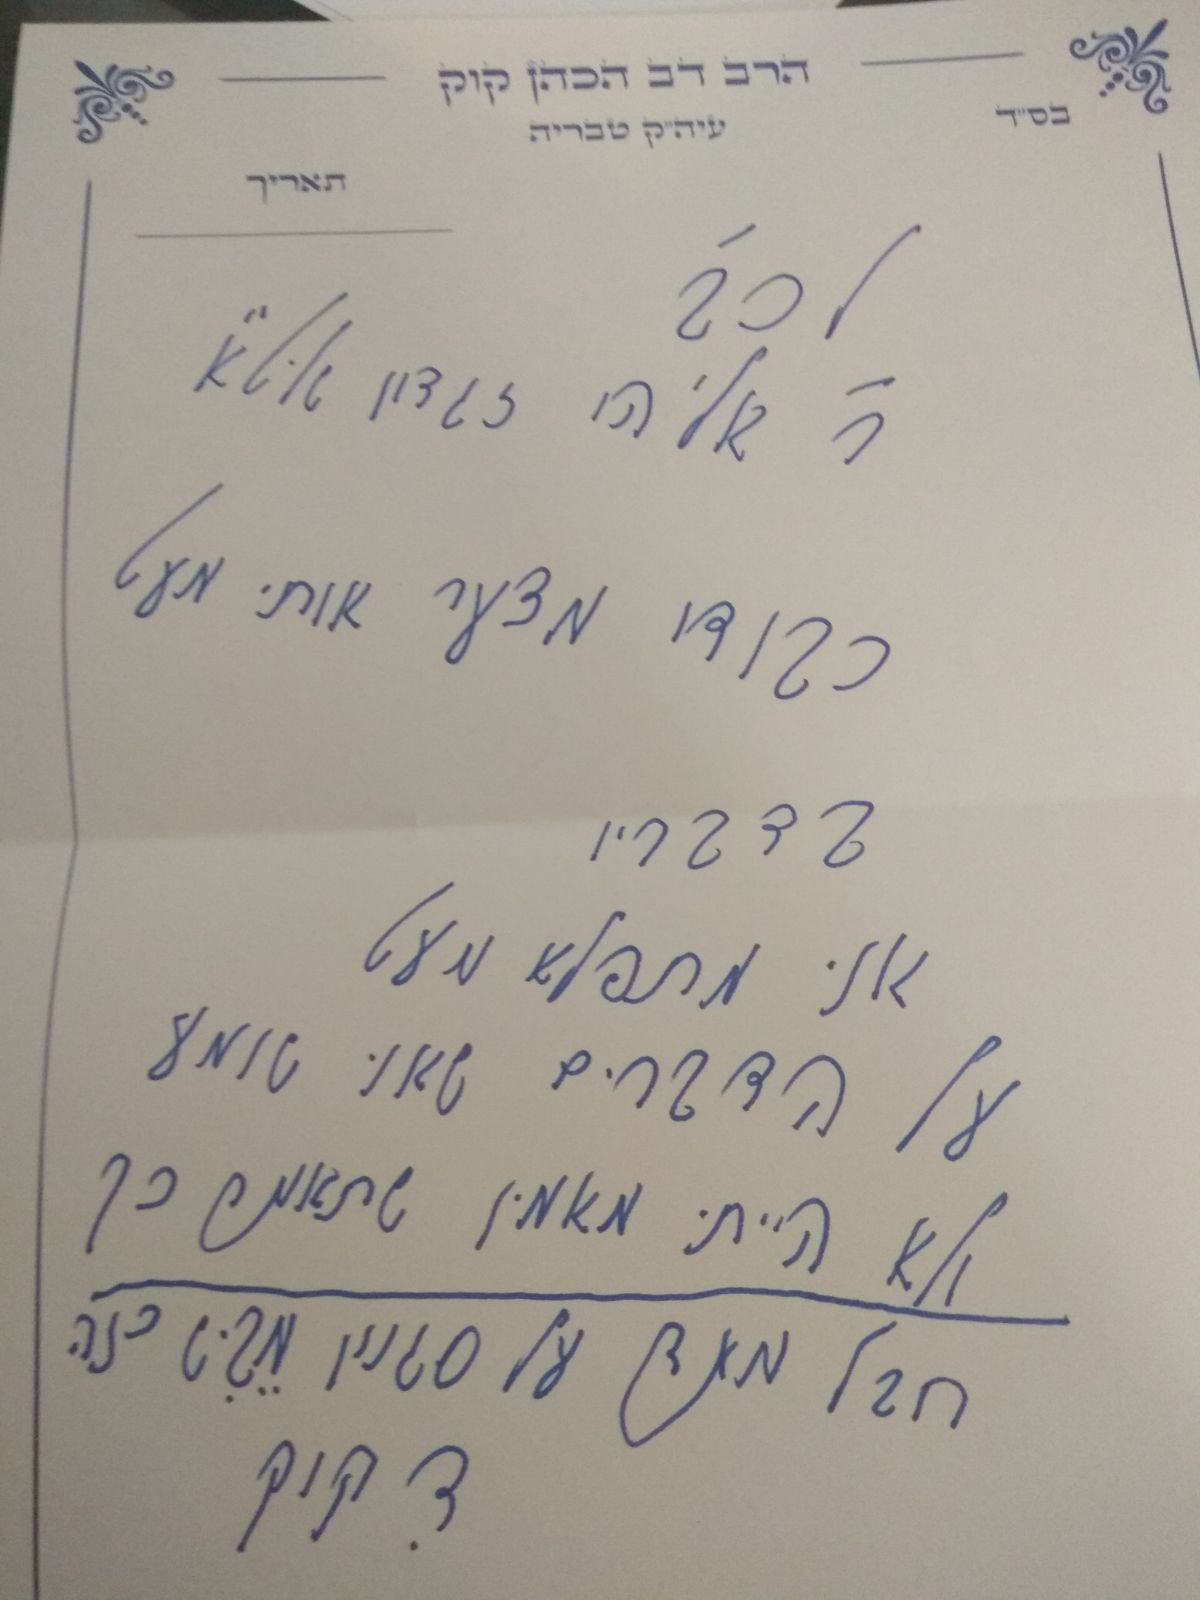 הרב דב הכהן קוק
בס״ד
עיה״ק טבריה
תאריך
לכב׳
ר׳ אליהו זגדון
כבודו מצער אותי מעט
בדבריו
אני מתפלא מעט
על הדברים שאני שומע
ולא הייתי מאמין כך
חבל מאד על סגנון כזה
ד. קוק